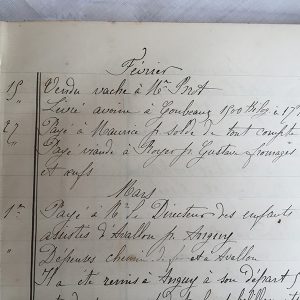 Février
15 Vendu vache à Mr Brot
" Livré avoine à Goubeaux 1500 à 17
27 Payé à Maurice p. solde de tout compte
" Payé viande à Boyer p. Gustave fromages
et œufs
Mars
1er Payé à Mr le Directeur des enfants
assistés d'Avallon p.
" Dépenses chemin de fer et à Avallon
Il a été remis à à son départ 5